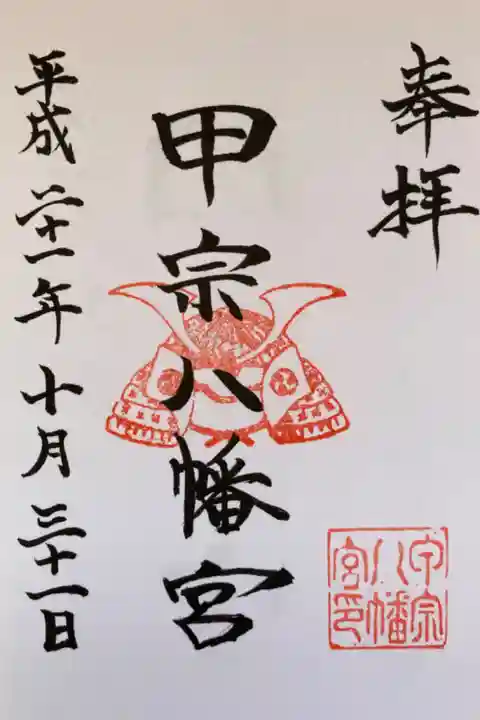 奉拝
甲宗八幡宮
平成二十一年十月三十一日
甲宗
八幡
宮印